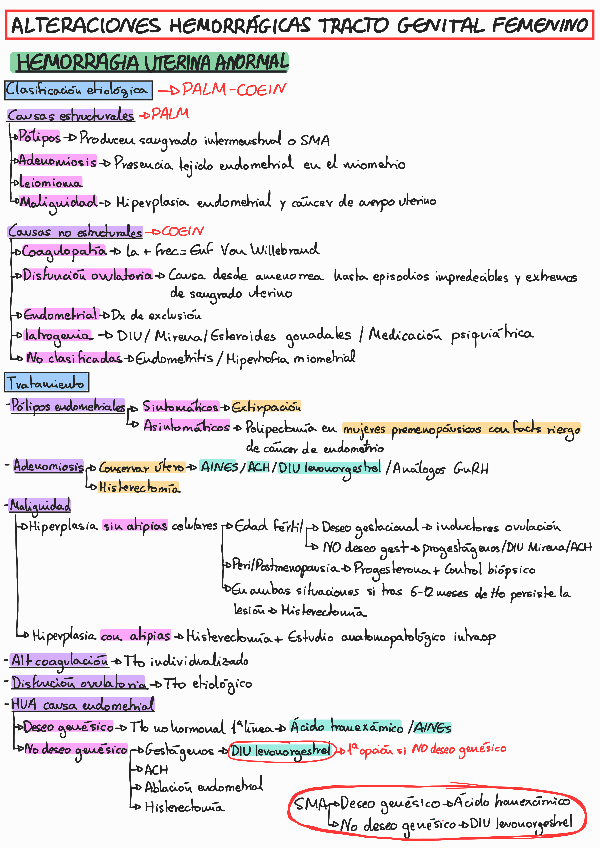 ALTERACIONES HEMORRÁGICAS TRACTO GENITAL FEMENINO
HEMORRAGIA UTERINA ANORMAL
Clasificación etiológica → PALM-COEIN
Causas estructurales → PALM
Pólipos → Producen sangrado intermenstrual o SMA
Adenomiosis → Presencia tejido endometrial en el miometrio
Leiomioma
Malignidad → Hiperplasia endometrial y cáncer de cuerpo uterino
Causas no estructurales → COEIN
Coagulopatía → La + frec = Enf Von Willebrand
Disfunción ovulatoria → Causa desde amenorrea hasta episodios impredecibles y extremos
de sangrado uterino
Endometrial → Dx de exclusión
Iatrogenia → DIU/Mirena/Esteroides gonadales/Medicación psiquiátrica
No clasificadas → Endometritis/Hipertrofia miometrial
Tratamiento
- Pólipos endometriales → Sintomáticos → Extirpación
Asintomáticos → Polipectomía en mujeres premenopáusicas con facts riesgo
de cáncer de endometrio
- Adenomiosis → Conservar útero → AINES/ACH/DIU levonorgestrel/Análogos GnRH
Histerectomía
- Malignidad
Hiperplasia sin atipias celulares → Edad fértil → Deseo gestacional → inductores ovulación
NO deseo gest → progestágenos/DIU Mirena/ACH
Peri/Postmenopausia → Progesterona + Control biópsico
En ambas situaciones si tras 6-12 meses de tto persiste la
lesión → Histerectomía
Hiperplasia con atipias → Histerectomía + Estudio anatomopatológico intraop
- Alt coagulación → Tto individualizado
- Disfunción ovulatoria → Tto etiológico
- HUA causa endometrial
Deseo genésico → Tto no hormonal 1ª línea → Ácido tranexámico/AINEs
No deseo genésico → Gestágenos → DIU levonorgestrel → 1ª opción si NO deseo genésico
ACH
Ablación endometrial
Histerectomía
SMA → Deseo genésico → Ácido tranexámico
No deseo genésico → DIU levonorgestrel